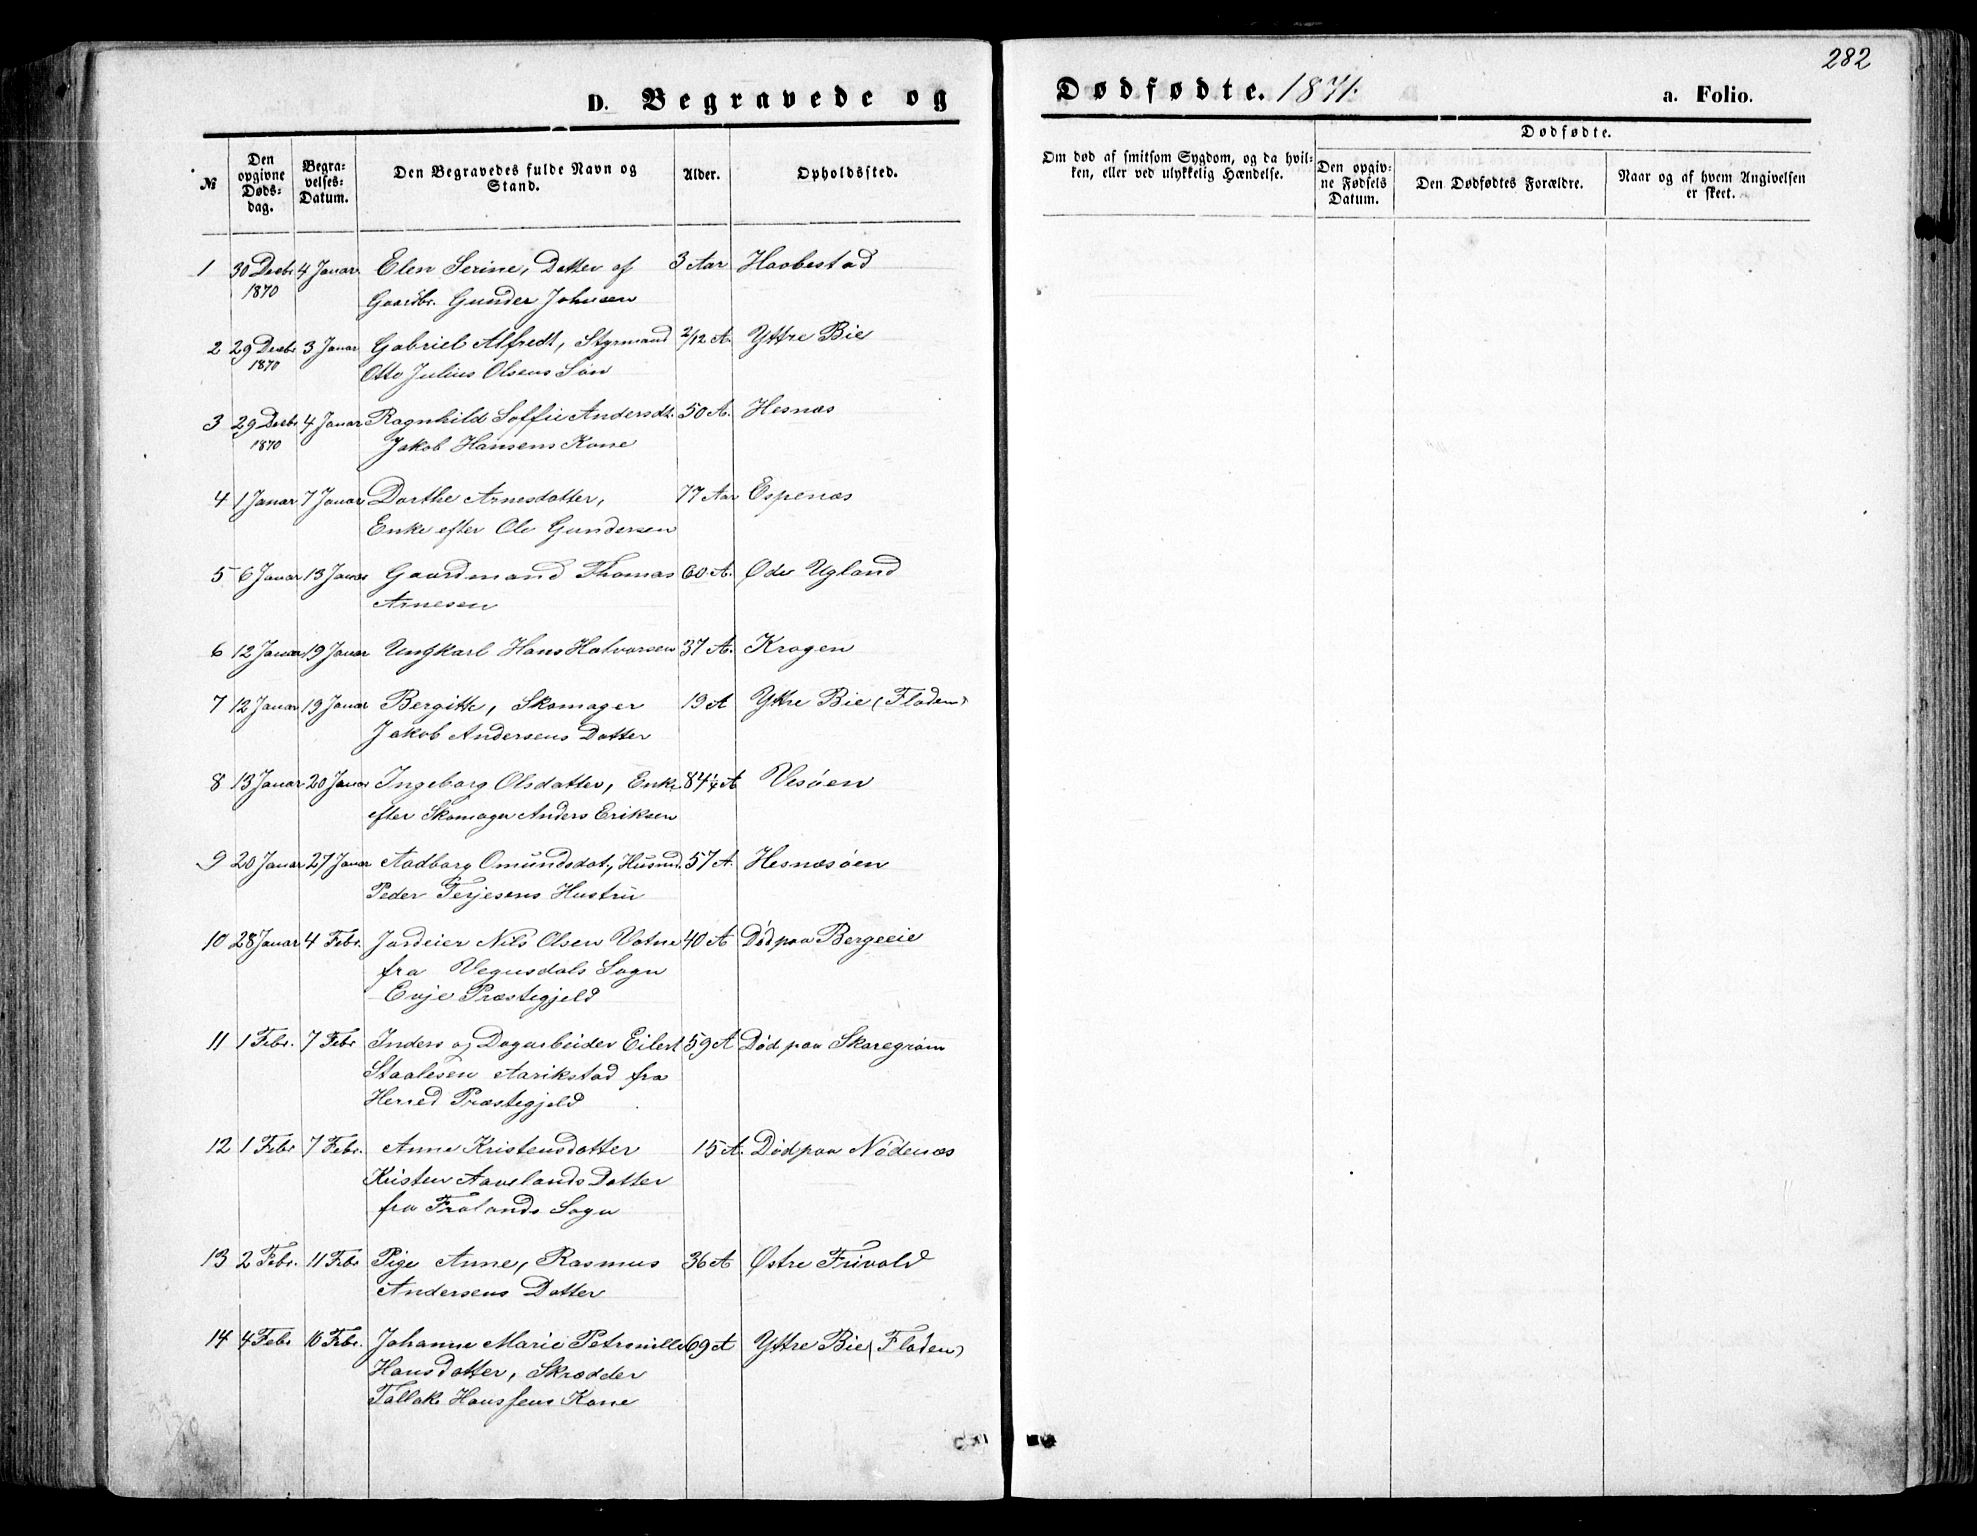 282
D. Begravede og Dødfødte. 1871. a. Folio.
Dødfødte.
№ Den opgivne Døds-dag. Begra-velses-Datum. Den Begravedes fulde Navn og Stand. Alder. Opholdssted. Om død af smitsom Sygdom, og da hvil-ken, eller ved ulykkelig Hændelse. Den opgiv-ne Fødsels Datum. Den Dødfødtes Forældre. Naar og af hvem Angivelsen er skeet.
1 30 Decbr 4 Januar Elen Serine, Datter af 3 Aar Haabestad
1870 Gaardbr. Gunder Johnsen
2 29 Decbr 3 Januar Gabriel Alfredt, Styrmand 2/12 A. Yttre Bie
1870 Otto Julius Olsens Søn
3 29 Decbr 4 Januar Ragnhild Soffie Andersdt. 50 A. Hesnæs
1870 Jakob Hansens Kone
4 1 Januar 7 Januar Dorthe Arnesdatter, 77 Aar Espenæs
Enke efter Ole Gundersen
5 6 Januar 13 Januar Gaardmand Thomas 60 A. Øde Ugland
Arnesen
6 12 Januar 19 Januar Ungkarl Hans Halvorsen 37 A. Kragen
7 12 Januar 19 Januar Bergitte, Skomager 19 A Yttre Bie (Floden)
Jakob Andersens Datter
8 13 Januar 20 Januar Ingeborg Olsdatter, Enke 84 1/4 A Vesøen
efter Skomager Anders Eriksen
9 20 Januar 27 Januar Aadborg Omundsdat, Husmd. 57 A. Hesnæsøen
Peder Terjesens Hustru
10 28 Januar 4 Febr. Jordeier Nils Olsen Vatne 40 A Død paa Bergeeie
fra Vegusdals Sogn
Evje Præstegjeld
11 1 Febr. 7 Febr Inders og Dagarbeider Eilert 59 A Død paa Skaregrøm
Staalesen Aarikstad fra
Herred Præstegjeld
12 1 Febr 7 Febr. Anne Kristensdatter 15 A. Død paa Nødenæs
Kristen Aavelands Datter
fra Frolands Sogn
13 2 Febr. 11 Febr Pige Anne, Rasmus 36 A Østre Frivold
Andersens Datter
14 4 Febr 10 Febr. Johanne Marie Petronille 69 A Yttre Bie (Floden)
Hansdatter, Skrædder
Tallak Hanssens Kone